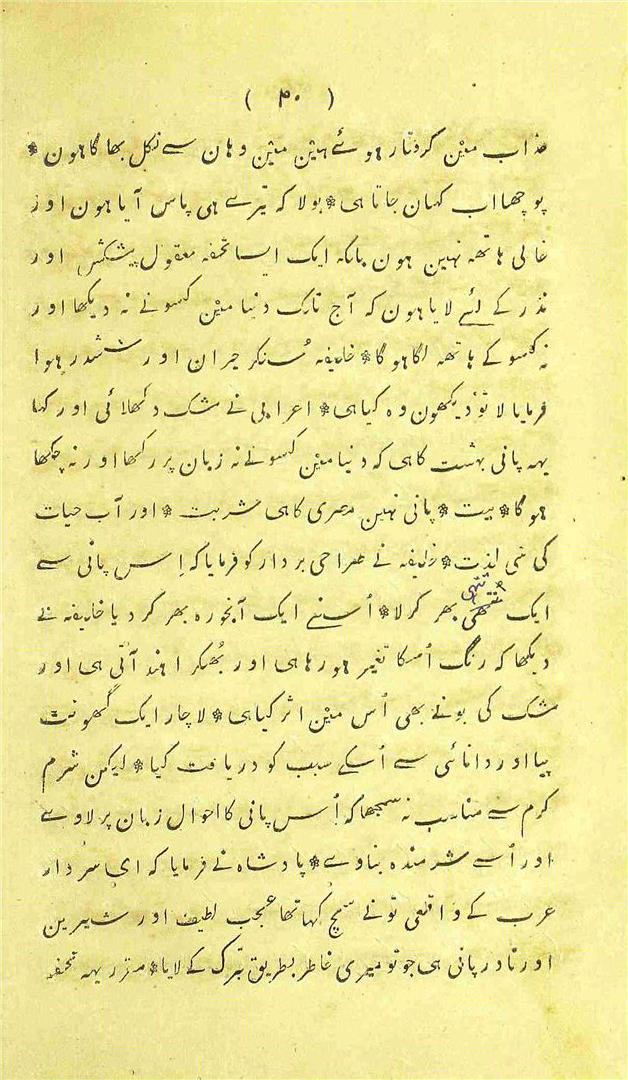 ( ۴۰ )
عذاب مین گرفتار ہوئے ہین مین وہان سے نکل بھاگا ہون *
پوچھا اب کہان جاتا ہی * بولا کہ تیرے ہی پاس آیا ہون اور
خالی ہاتھہ نہین ہون بلکہ ایک ایسا تحفہ معقول پیشکش اور
نذر کے لئے لایا ہون کہ آج تلک دنیا مین کسو نے نہ دیکھا اور
نہ کسو کے ہاتھہ لگا ہوگا * خلیفہ سُنکر حیران اور ششدر ہوا
فرمایا لا تو دیکھون وہ کیا ہی * اعرابی نے مشک دکھلائی اور کہا
یہہ پانی بہشت کا ہی کہ دنیا مین کسو نے نہ زبان پر رکھا اور نہ چکھا
ہوگا * بیت * پانی نہین مصری کا ہی شربت * اور آب حیات
کی سی لذت * خلیفہ نے صراحی بردار کو فرمایا کہ اِس پانی سے
ایک بھر کر لا * اُسنے ایک آبخورہ بھر کر دیا خلیفہ نے
دیکھا کہ رنگ اُسکا تغیر ہو رہا ہی اور اہند آتی ہی اور
مشک کی بو نے بھی اُس مین اثر کیا ہی * لاچار ایک گھونٹ
پیا اور دانائی سے اُسکے سبب کو دریافت کیا * لیکن شرم
کرم نے مناسب نہ سمجھا کہ اُس پانی کا احوال زبان پر لاوے
اور اُسے شرمندہ بناوے * پادشاہ نے فرمایا کہ ای سردار
عرب کے واقعی تو نے سچ کہا تھا عجب لطیف اور شیرین
اور نادر پانی ہی جو تو میری خاطر بطریق تبرک کے لایا * یہہ تحفہ